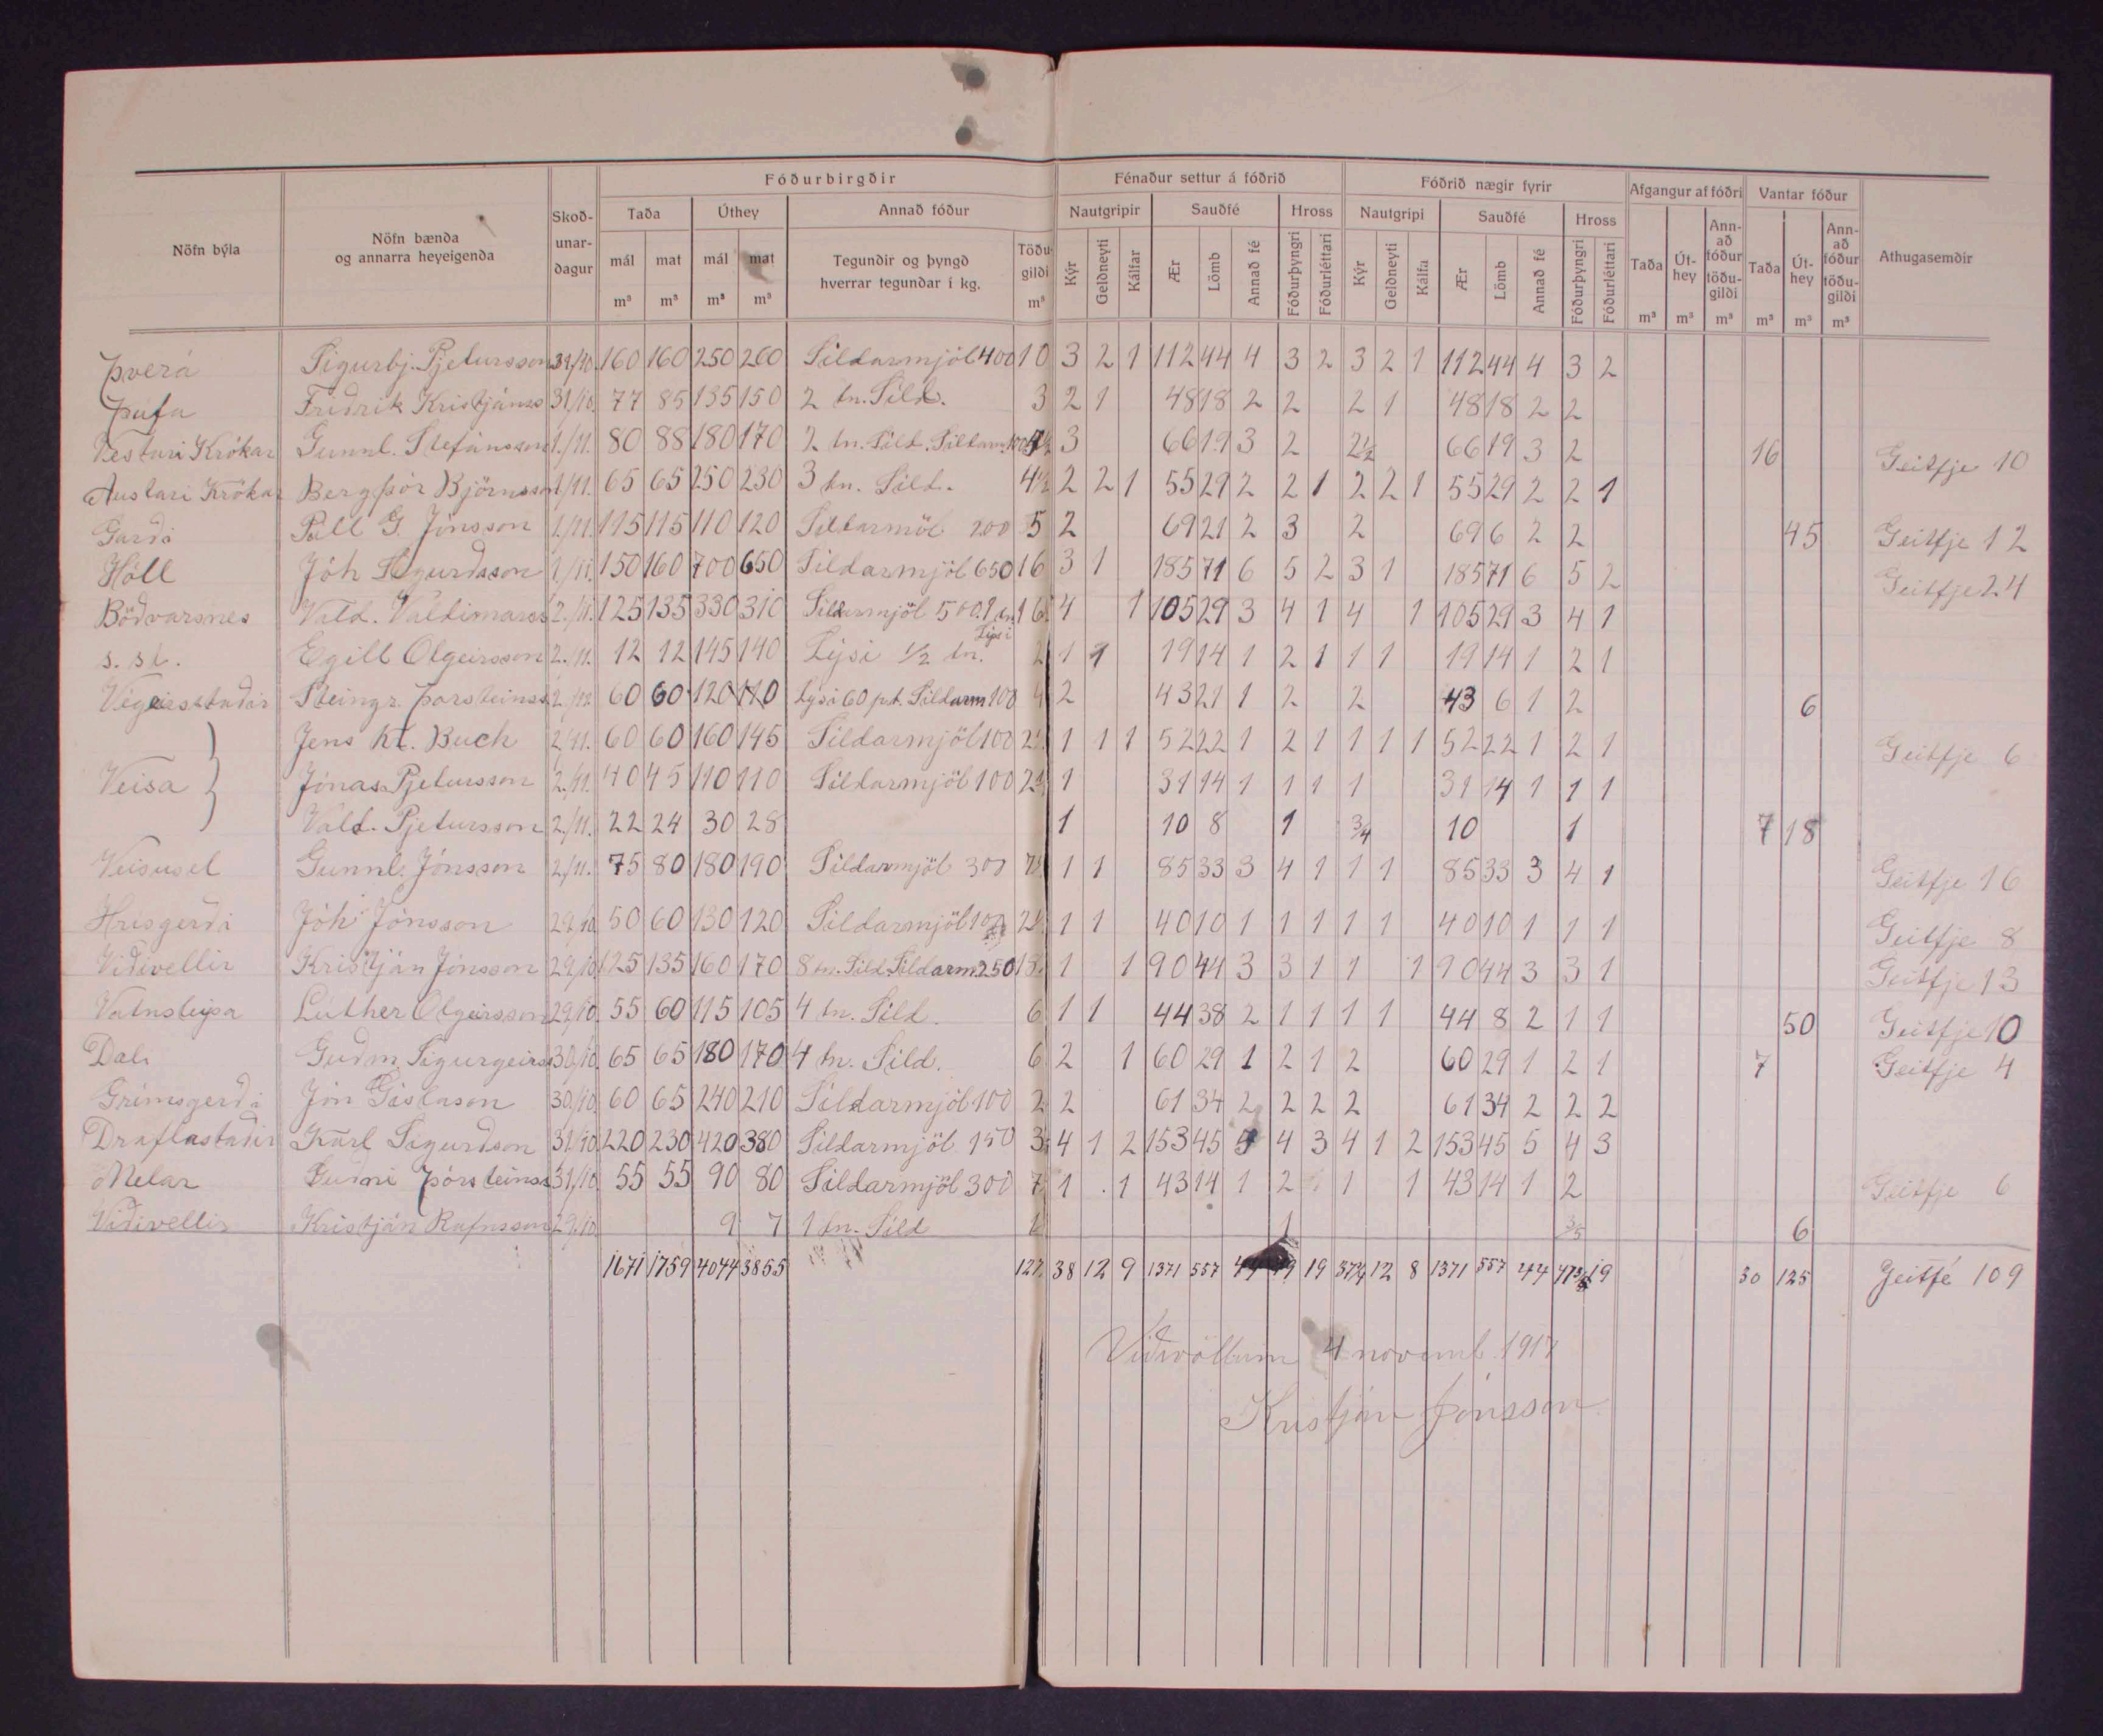 Fóðurbirgðir Fénaður settur á fóðrið Fóðrið nægir fyrir Afgangur af fóðri Vantar fóður
Nöfn býla Nöfn bænda og annarra heyeigenda Skoð-unar-dagur Taða Úthey Annað fóður Nautgripir Sauðfé Hross Nautgripi Sauðfé Hross Taða Út-hey Ann-að fóður töðu-gildi Taða Út-hey Ann-að fóður töðu-gildi Athugasemdir
mál mat mál mat Tegundir og þyngd hverrar tegundar í kg. Töðu-gildi Kýr Geldneyti Kálfar Ær Lömb Annað fé Fóðurþyngri Fóðurléttari Kýr Geldneyti Kálfa Ær Lömb Annað fé Fóðurþyngri Fóðurléttari
m³ m³ m³ m³ m³ m³ m³ m³ m³ m³ m³
Þverá Sigurbj. Pjetursson 31/10. 160 160 250 260 Síldarmjöl 400 10 3 2 1 112 44 4 3 2 3 2 1 112 44 4 3 2
Þúfa Friðrik Kristjánss 31/10. 77 85 135 150 2 tn. Síld. 3 2 1 48 18 2 2 2 1 48 18 2 2
Vestari Krókar Gunnl. Stefánsson 1./11. 80 88 180 170 2 tn. Síld. Síldarm. 100 3 66 19 3 2 2½ 66 19 3 2 16 Geitfje 10
Austari Krókar Bergþór Björnsson 1/11. 65 65 250 230 3 tn. Síld. 4½ 2 2 1 55 29 2 2 1 2 2 1 55 29 2 2 1
Garði Páll G. Jónsson 1./11. 115 115 110 120 Síldarmöl 200 5 2 69 21 2 3 2 69 6 2 2 45 Geitfje 12
Höll Jóh Sigurðsson 1./11. 150 160 700 650 Síldarmjöl 650 16 3 1 185 71 6 5 2 3 1 185 71 6 5 2 Geitfje 24
Böðvarsnes Vald. Valdimarss 2./11. 125 135 330 310 Síldarmjöl 500. 1 tn. Lýsi 16 4 1 105 29 3 4 1 4 1 105 29 3 4 1
s. st. Egill Olgeirsson 2./11. 12 12 145 140 Lýsi ½ tn. 2 1 1 19 14 1 2 1 1 1 19 14 1 2 1
Végeirsstaðir Steingr. Þorsteinss 2./11. 60 60 120 110 Lýsi 60 pt. Síldarm 100 4 2 43 21 1 2 2 43 6 1 2 6
Veisa Jens Kr. Buch 2/11. 60 60 160 145 Síldarmjöl 100 2½ 1 1 1 52 22 1 2 1 1 1 1 52 22 1 2 1 Geitfje 6
Jónas Pjetursson 2./11. 40 45 110 110 Síldarmjöl 100 2½ 1 31 14 1 1 1 1 31 14 1 1 1
Vald. Pjetursson 2./11. 22 24 30 28 1 10 8 1 ¾ 10 1 7 18
Veisusel Gunnl. Jónsson 2/11. 75 80 180 190 Síldarmjöl 300 1 1 85 33 3 4 1 1 1 85 33 3 4 1 Geitfje 16
Hrísgerði Jóh Jónsson 29/10 50 60 130 120 Síldarmjöl 100 2½ 1 1 40 10 1 1 1 1 1 40 10 1 1 1 Geitfje 8
Víðivellir Kristján Jónsson 29/10 125 135 160 170 8 tn. Síld. Síldarm. 250 18 1 1 90 44 3 3 1 1 1 90 44 3 3 1 Geitfje 13
Vatnsleysa Lúther Olgeirsson 29/10. 55 60 115 105 4 tn. Síld. 6 1 1 44 38 2 1 1 1 1 44 8 2 1 1 50 Geitfje 10
Dali Guðm. Sigurgeirss 30/10 65 65 180 170 4 tn. Síld. 6 2 1 60 29 1 2 1 2 60 29 1 2 1 7 Geitfje 4
Grímsgerði Jón Gíslason 30/10 60 65 240 210 Síldarmjöl 100 2 2 61 34 2 2 2 2 61 34 2 2 2
Draflastaðir Karl Sigurðson 31/10 220 230 420 380 Síldarmjöl 150 3½ 4 1 2 153 45 5 4 3 4 1 2 153 45 5 4 3
Melar Guðni Þórsteinss 31/10 55 55 90 80 Síldarmjöl 300 7 1 1 43 14 1 2 1 1 43 14 1 2 Geitfje 6
Víðivellir Kristján Rafnsson 29/10 9 7 1 tn. Síld 1 3/5 6
1671 1759 4044 3855 127 38 12 9 1371 557 44 49 19 37¼ 12 8 1371 557 44 47 3/5 19 30 125 Geitfé 109
Víðivöllum 4 novemb. 1917
Kristján Jónsson